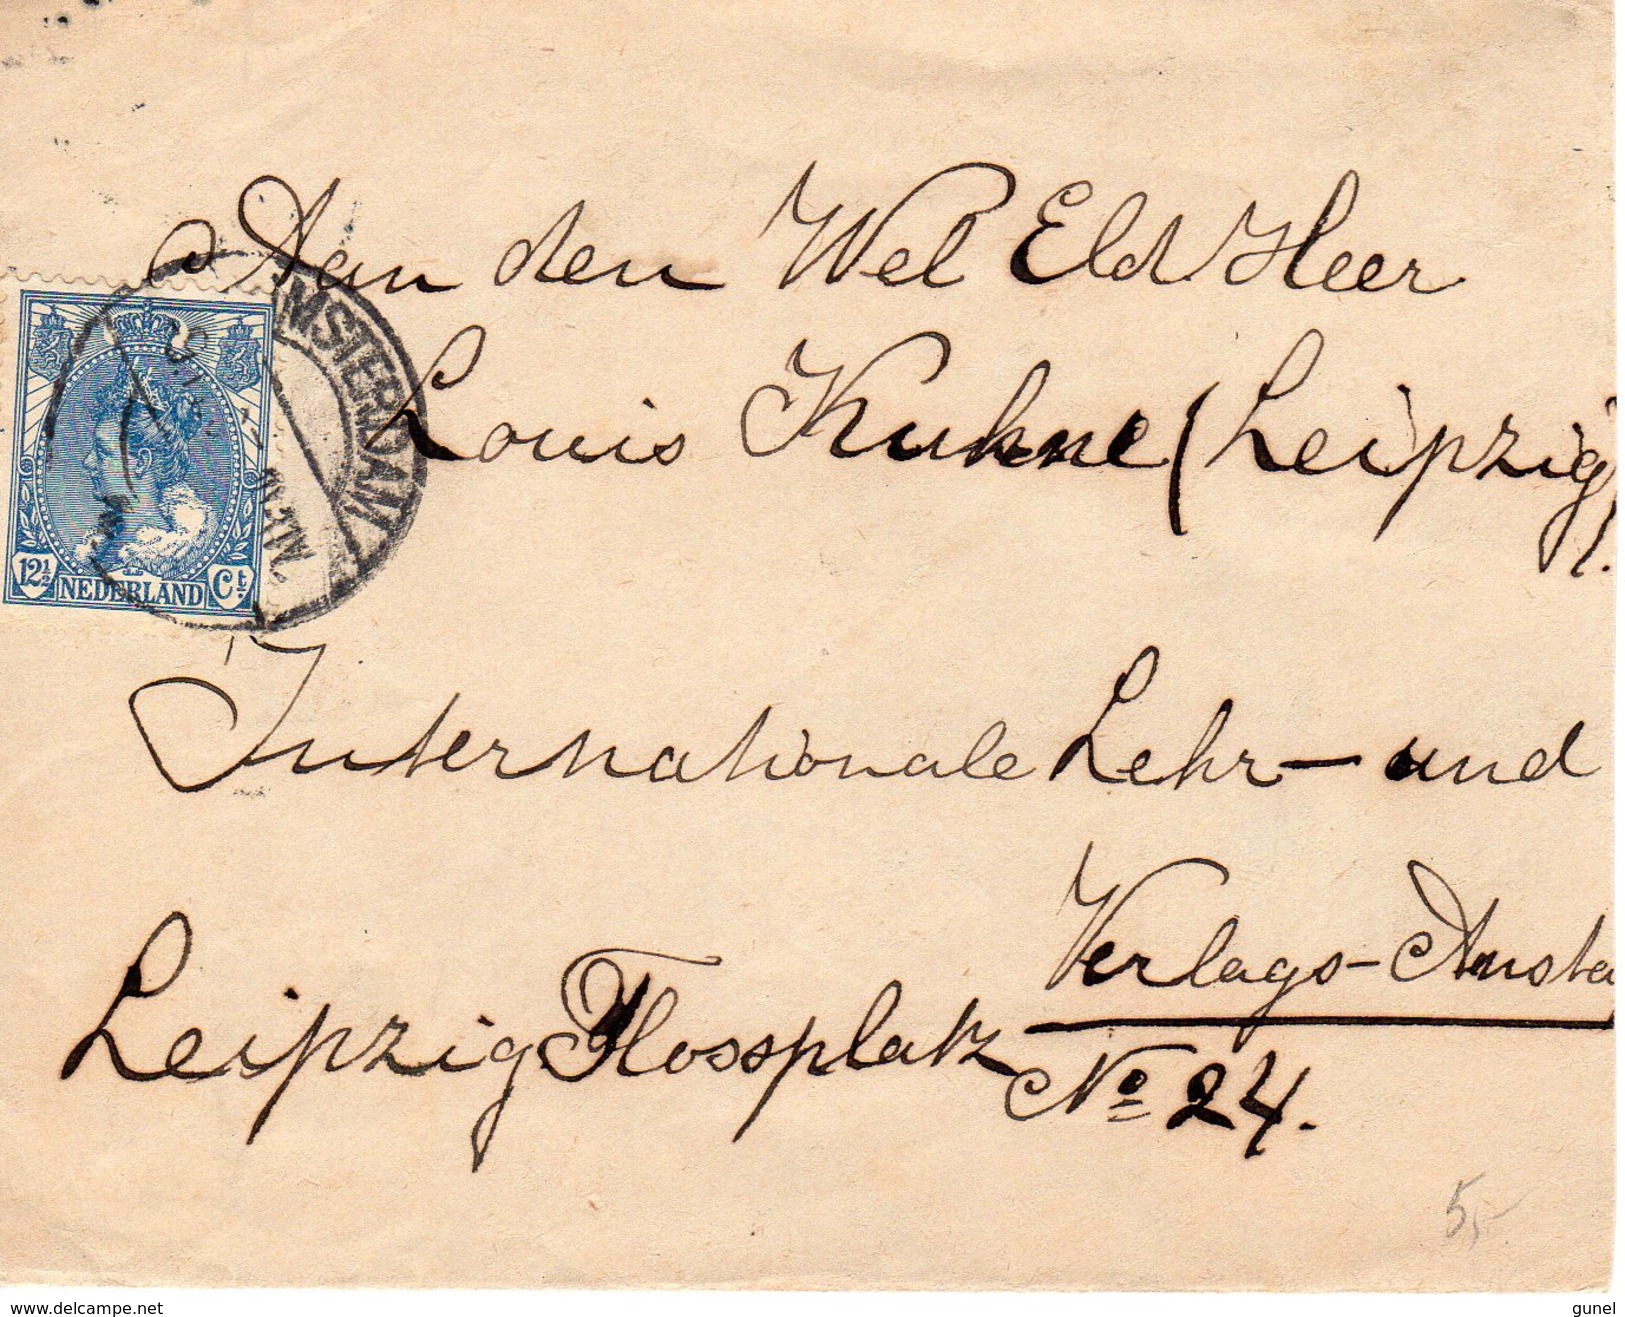 Aan den Wel Eld Heer
Louis Kuhne (Leipzig).
Internationale Lehr- und
Verlags-Ansta
Leipzig Flossplatz
No 24.
AMSTERDAM
12½ NEDERLAND Ct.
5,-
www.delcampe.net
gunel